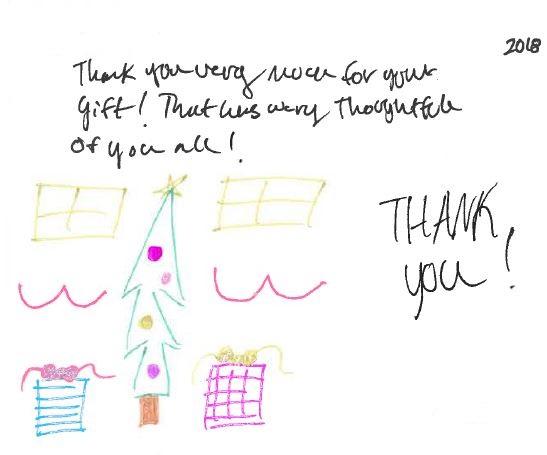 2018
Thank you very much for your
gift! That was very thoughtful
of you all!
THANK
you!